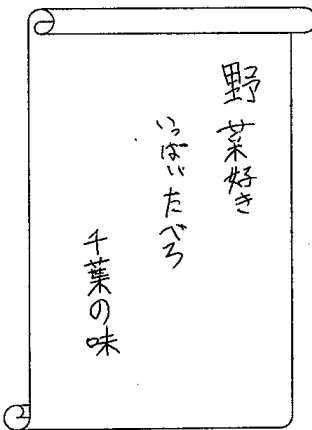 野菜好き
いっぱいたべろ
千葉の味